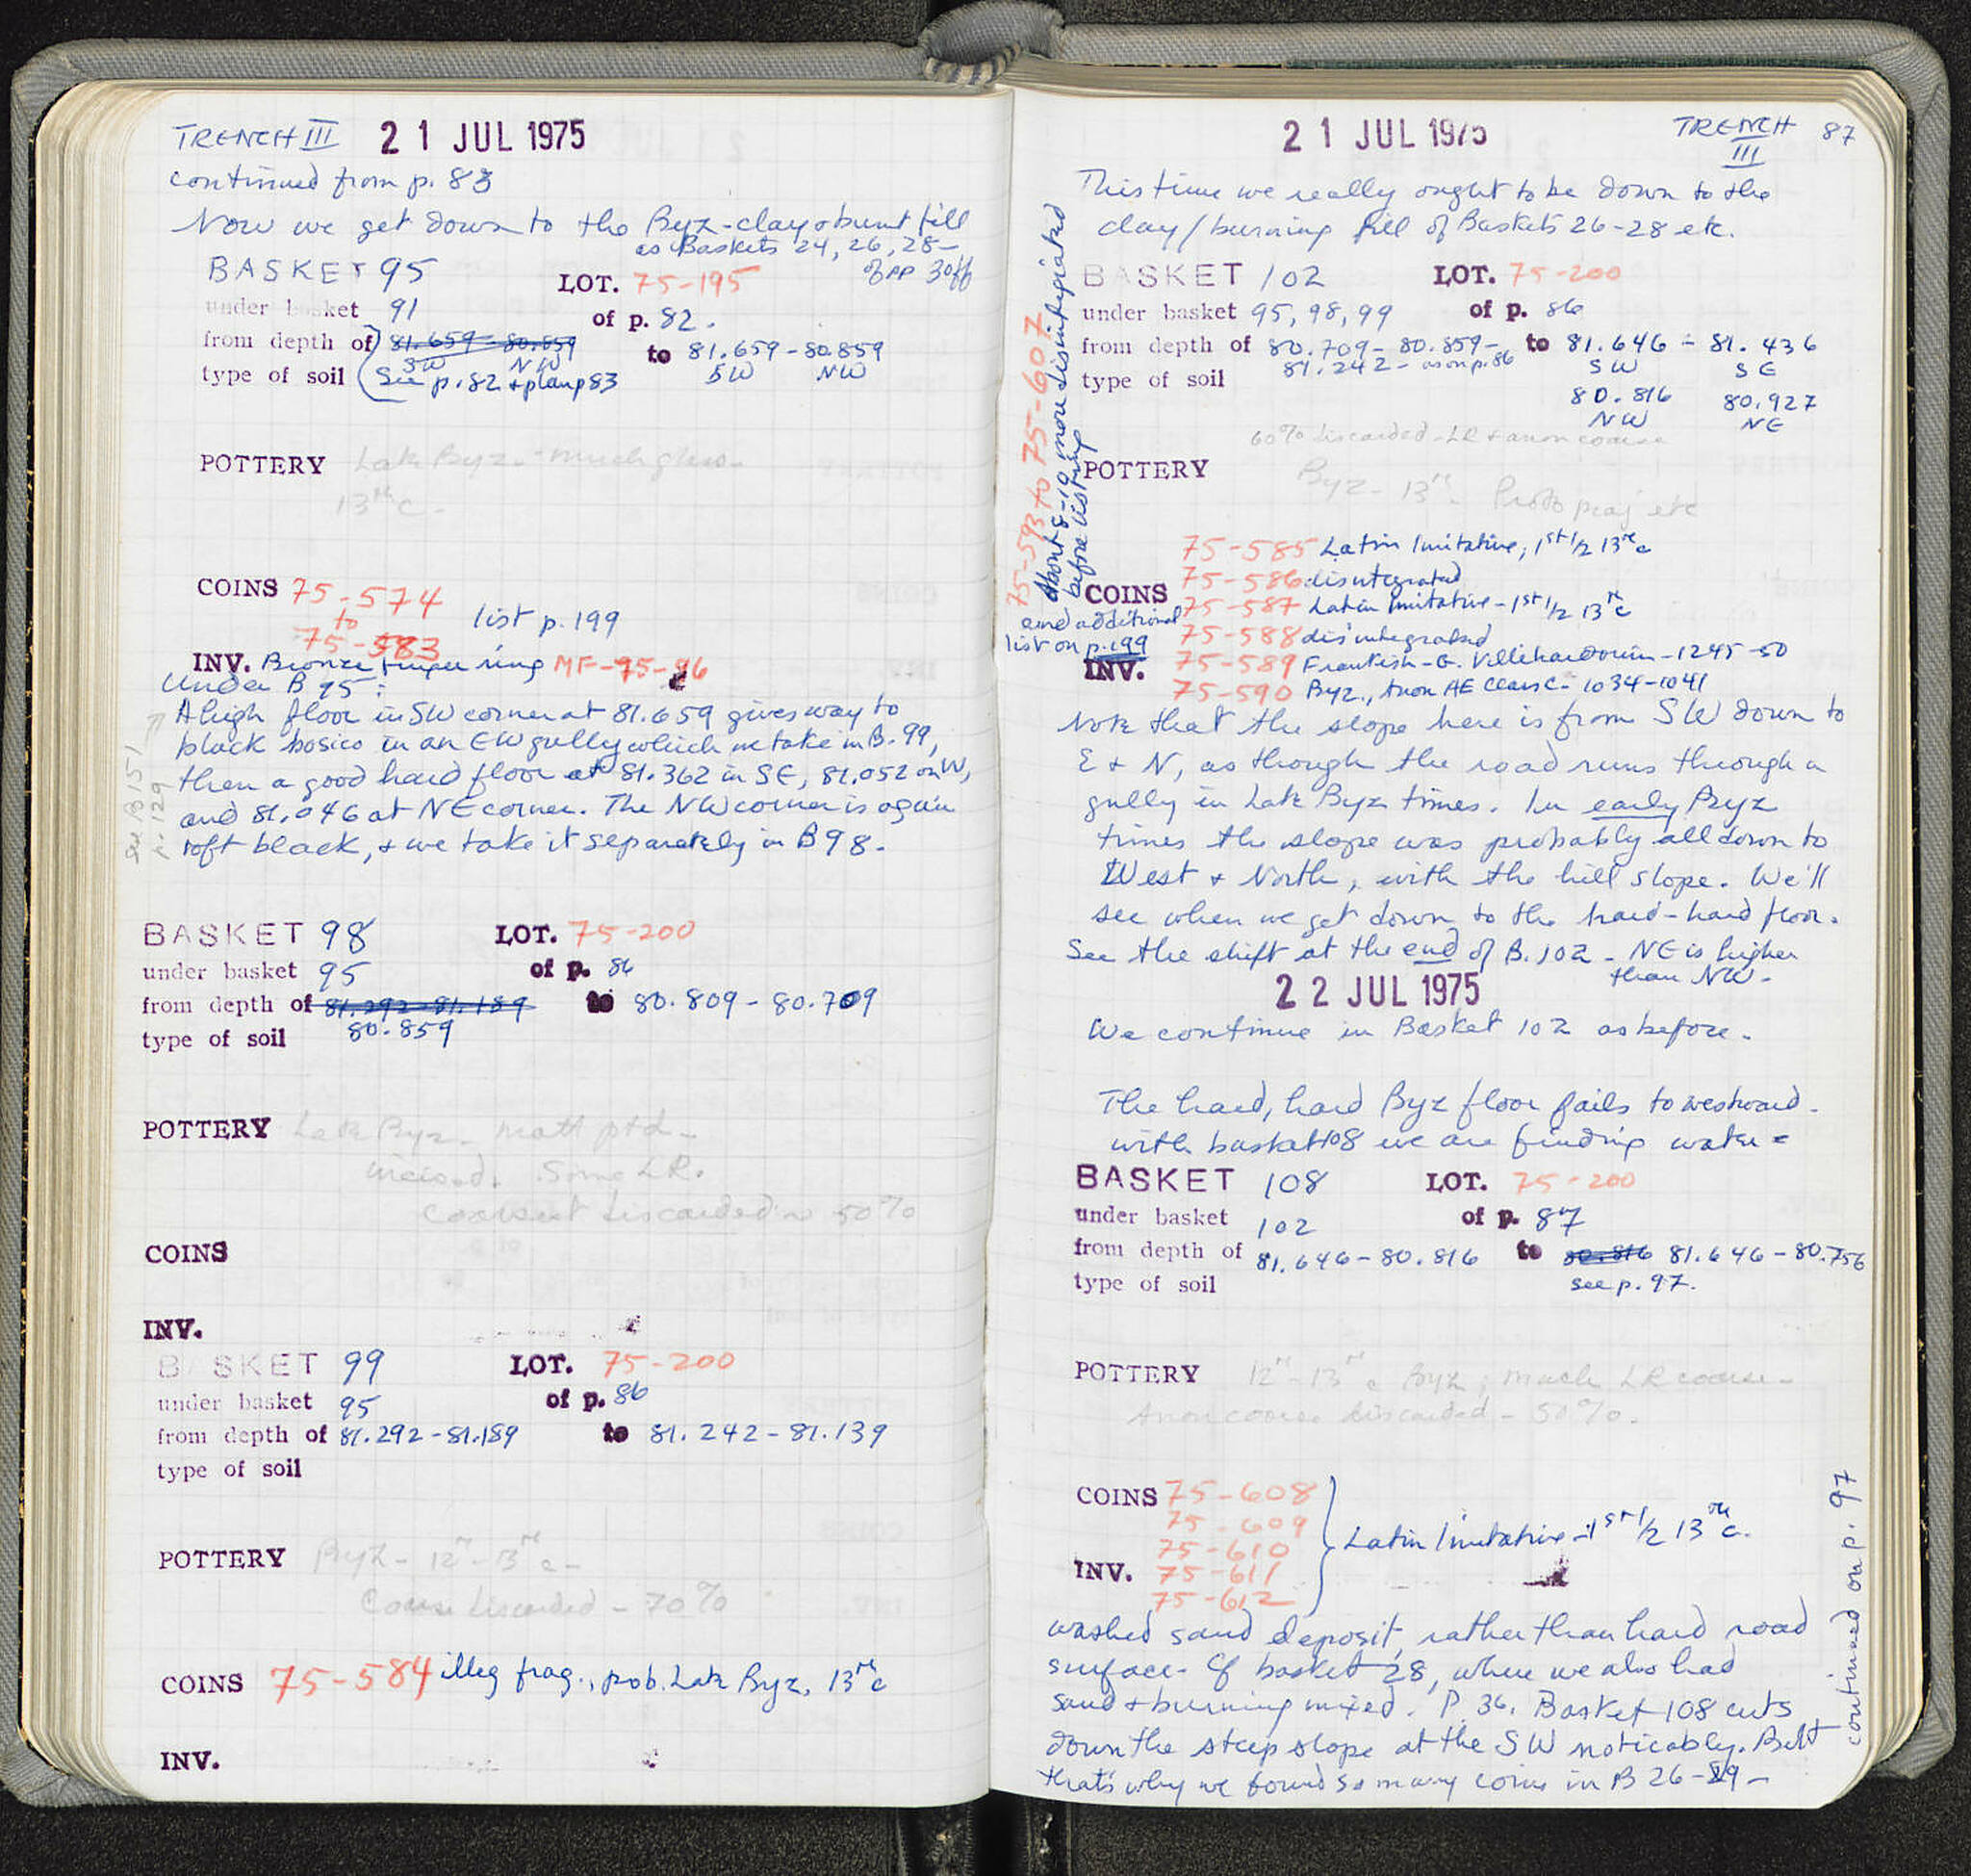 TRENCH III 21 JUL 1975
continued from p. 83
Now we get down to the Byz-clay & burnt fill
as Baskets 24, 26, 28-
of pp 30ff
BASKET 95 LOT. 75-195
under basket 91 of p. 82.
from depth of 81.659 - 80.859 to 81.659 - 80.859
SW NW SW NW
type of soil See p. 82 + plan p 83
POTTERY Late Byz. - much glaze.
13th c.
COINS 75-574
to
75-583 list p. 199
INV. Bronze finger ring MF-75-86
Under B 95:
A high floor in SW corner at 81.659 gives way to
black bosico in an EW gully which we take in B. 99,
then a good hard floor at 81.362 in SE, 81.052 on W,
and 81.046 at NE corner. The NW corner is again
soft black, & we take it separately in B 98.
see B 151
p. 129
BASKET 98 LOT. 75-200
under basket 95 of p. 86
from depth of 81.292-81.189 to 80.809 - 80.709
80.859
type of soil
POTTERY Late Byz. matt ptd -
incised. Some LR.
discarded 50%
COINS
INV.
BASKET 99 LOT. 75-200
under basket 95 of p. 86
from depth of 81.292-81.189 to 81.242 - 81.139
type of soil
POTTERY Byz - 12th - 13th c -
Coarse discarded - 70%
COINS 75-584 illeg frag., prob. Late Byz, 13th c
INV.
21 JUL 1975 TRENCH III 87
This time we really ought to be down to the
clay/burning fill of Baskets 26-28 etc.
BASKET 102 LOT. 75-200
under basket 95, 98, 99 of p. 86
from depth of 80.709 - 80.859 - to 81.646 - 81.436
81.242 - as on p. 86 SW SE
type of soil
80.816 80.927
NW NE
60% discarded - LR & anon coarse
POTTERY Byz - 13th - Proto maj etc
75-593 to 75-607
About 8-10 more disintegrated
before listing
COINS
and additional
list on p. 199
75-585 Latin Imitative, 1st 1/2 13th c
75-586 disintegrated
75-587 Latin Imitative - 1st 1/2 13th c
75-588 disintegrated
75-589 Frankish - G. Villehardouin - 1245-50
75-590 Byz., Anon AE Class C - 1034-1041
INV.
Note that the slope here is from SW down to
E & N, as though the road runs through a
gully in Late Byz times. In early Byz
times the slope was probably all down to
West & North, with the hill slope. We'll
see when we get down to the hard-hard floor.
See the shift at the end of B. 102 - NE is higher
than NW -
22 JUL 1975
We continue in Basket 102 as before.
The hard, hard Byz floor fails to westward.
with basket 108 we are finding water =
BASKET 108 LOT. 75-200
under basket 102 of p. 87
from depth of 81.646 - 80.816 to 80.816 81.646 - 80.756
type of soil see p. 97.
POTTERY 12th - 13th c Byz; much LR coarse -
Anon coarse discarded - 50%.
COINS 75-608
75-609
75-610
INV. 75-611
75-612
Latin Imitative - 1st 1/2 13th c.
washed sand deposit, rather than hard road
surface. Cf basket 28, where we also had
sand & burning mixed. P 36. Basket 108 cuts
down the steep slope at the SW noticably. But
that's why we found so many coins in B 26-29 -
continued on p. 97